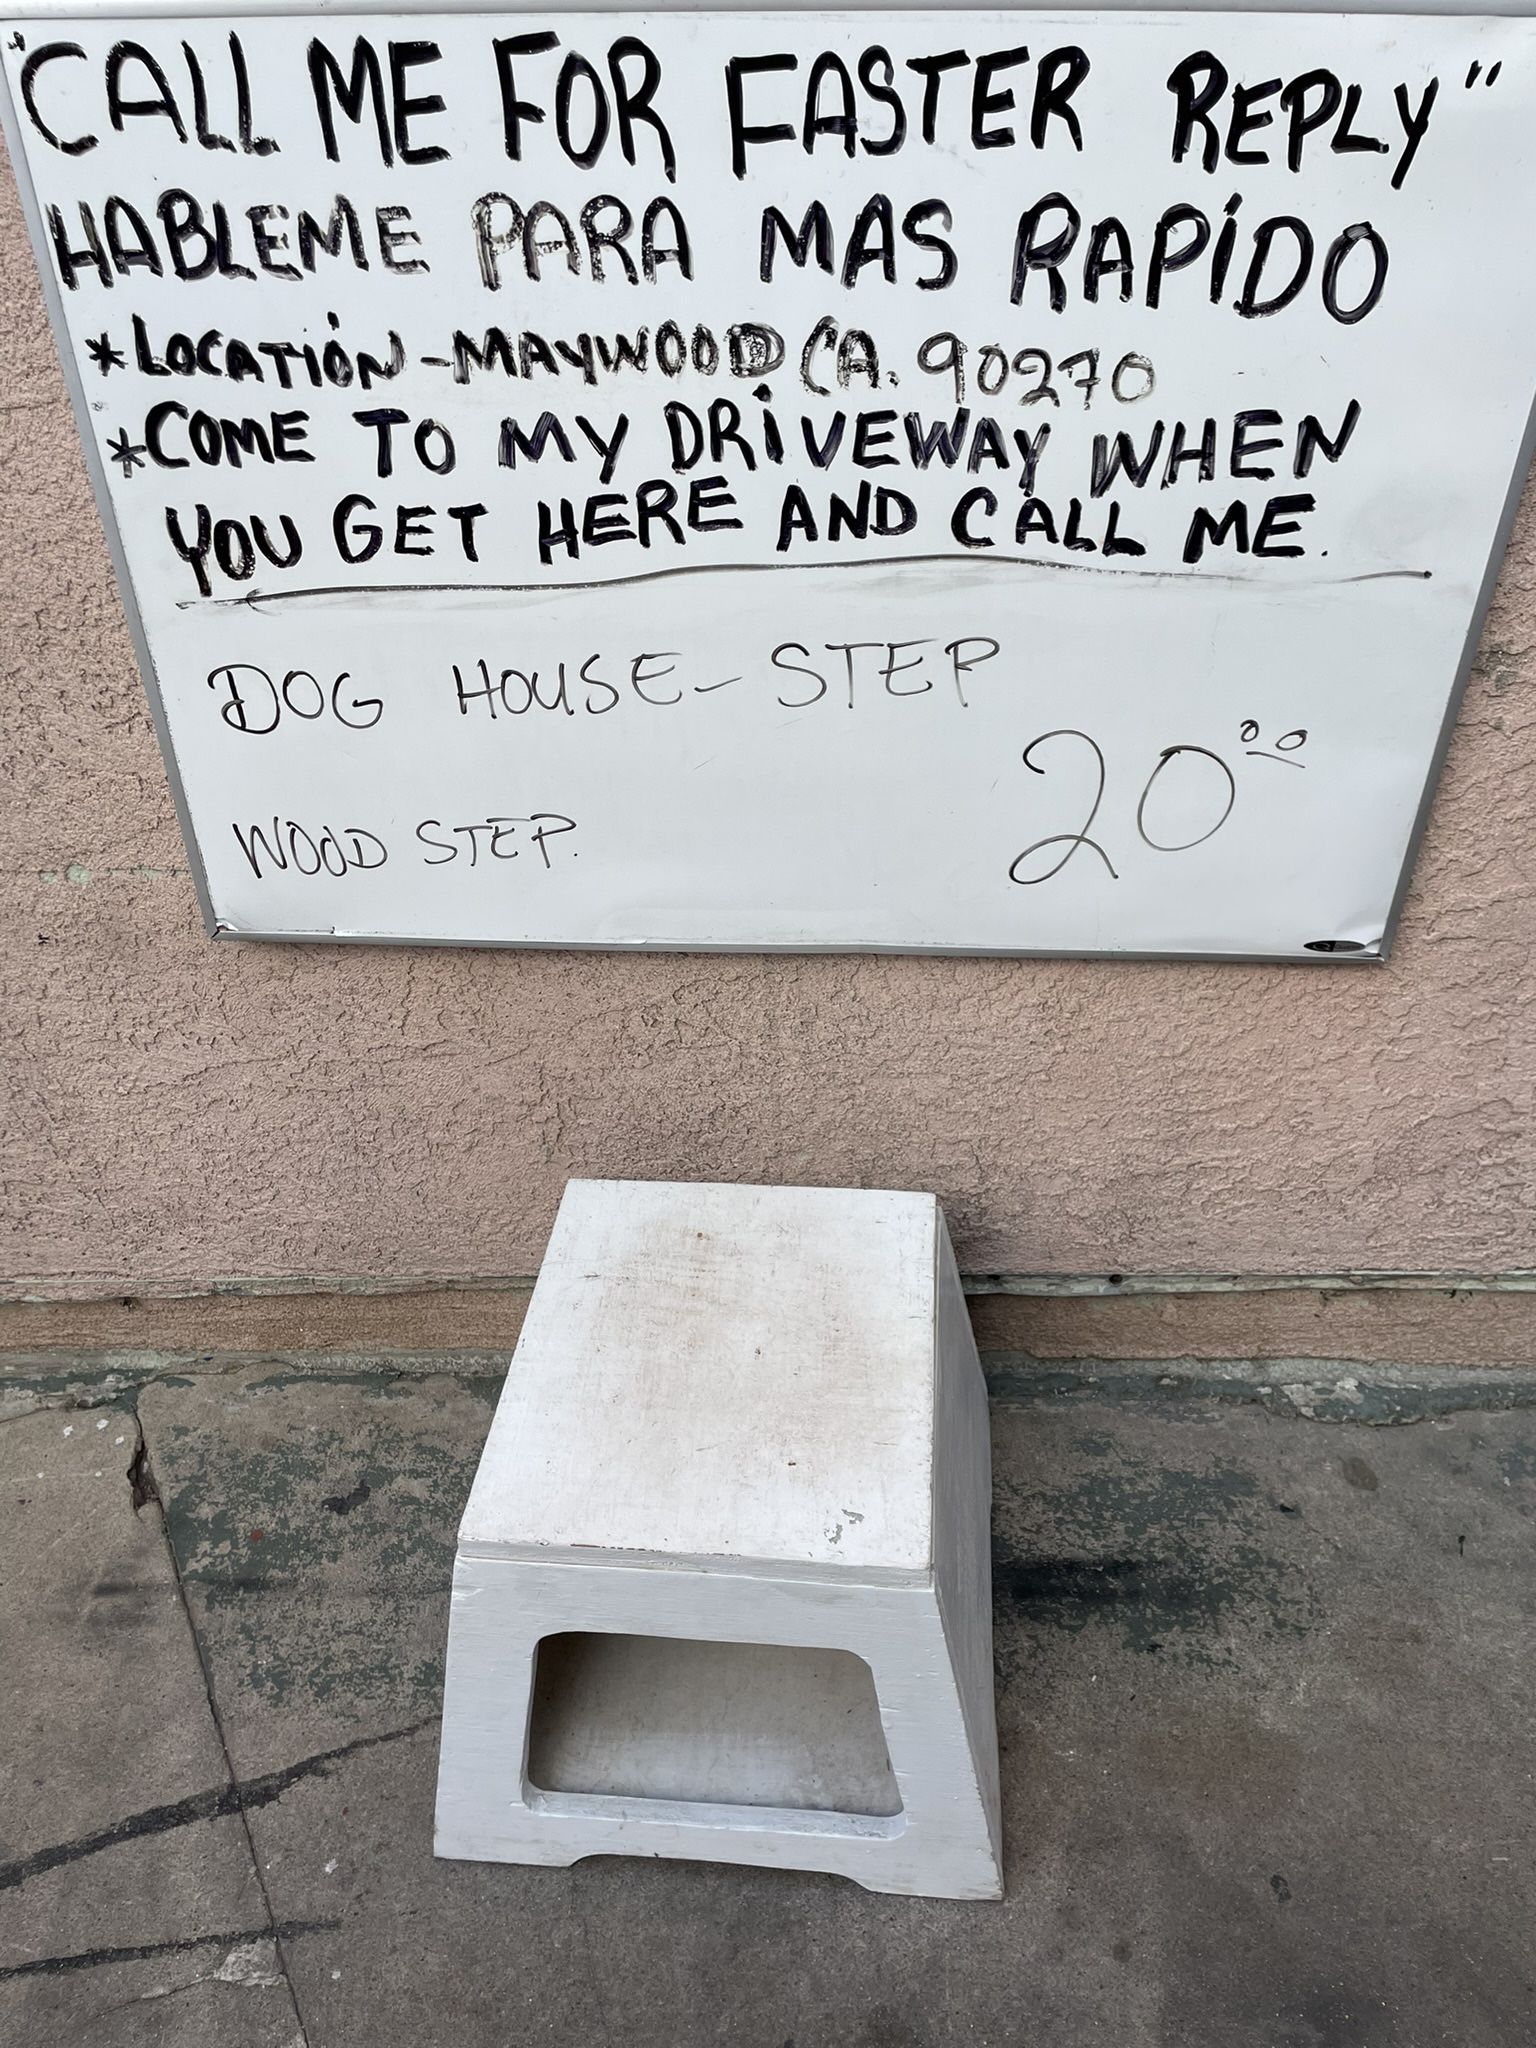 "CALL ME FOR FASTER REPLY"
HABLEME PARA MAS RAPIDO
*LOCATION - MAYWOOD CA. 90270
*COME TO MY DRIVEWAY WHEN
YOU GET HERE AND CALL ME.
DOG HOUSE - STEP
20⁰⁰
WOOD STEP.